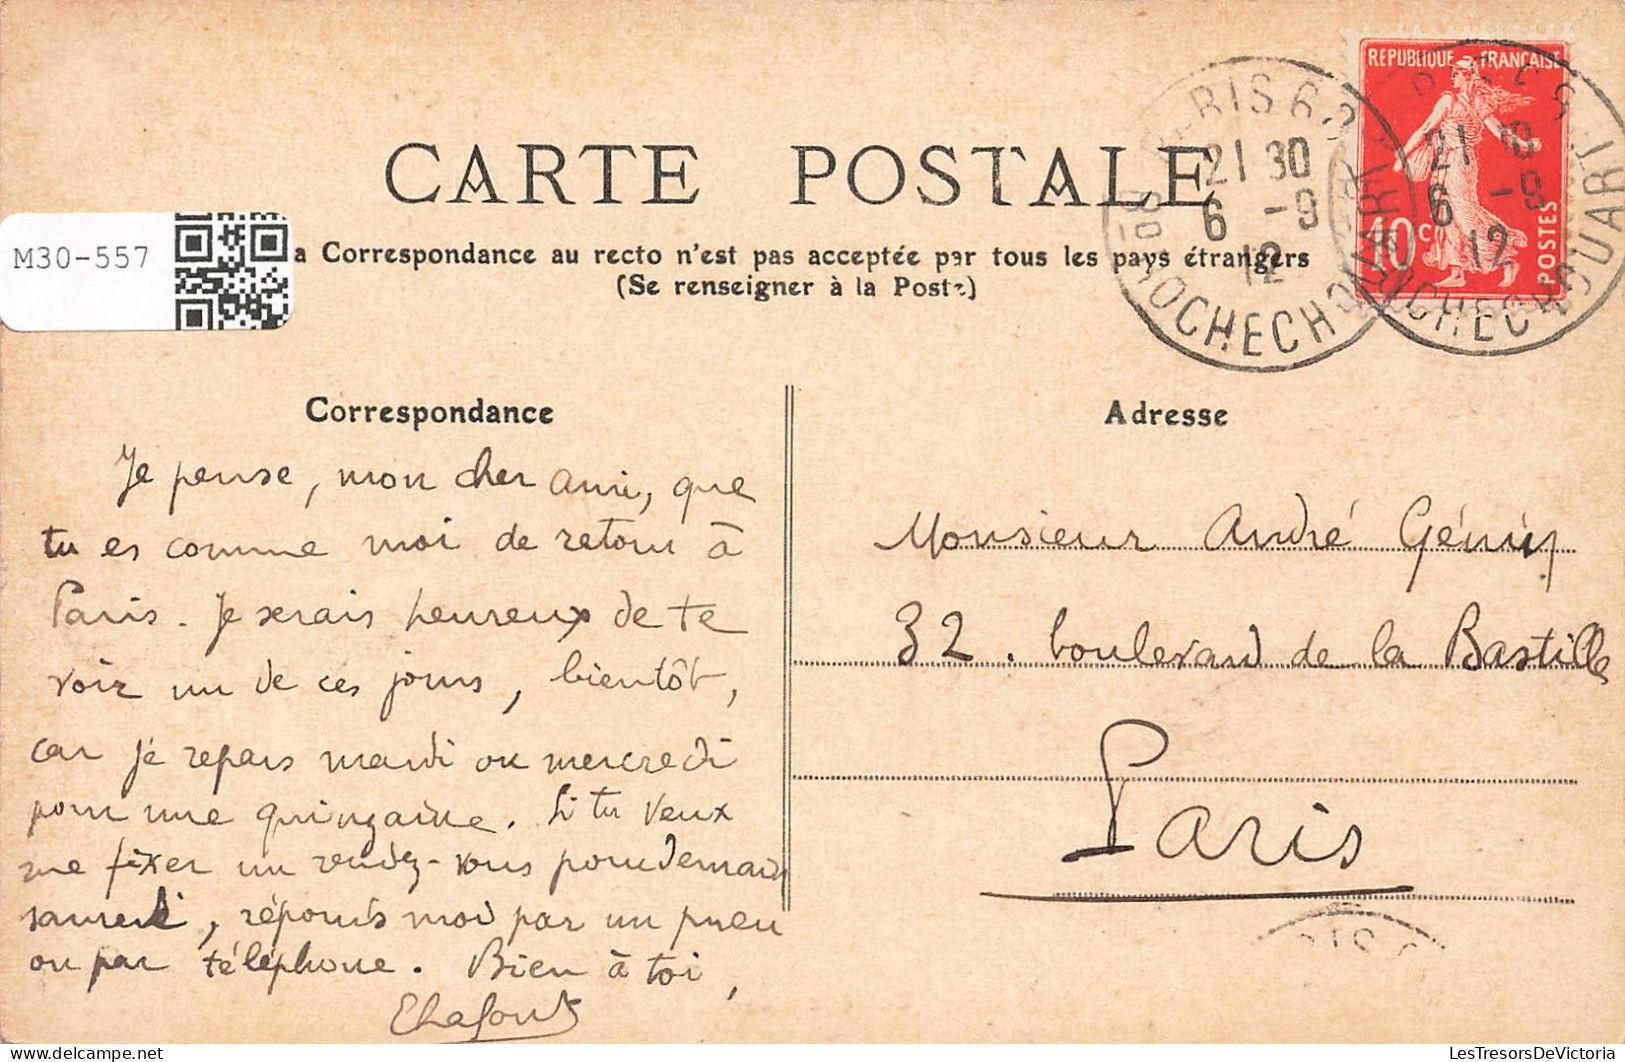 REPUBLIQUE FRANÇAISE
10c POSTES
21 30
6 -9
12
ROCHECHOUART
21
6 -9
12
ROCHECHOUART
CARTE POSTALE
M30-557
a Correspondance au recto n'est pas acceptée par tous les pays étrangers
(Se renseigner à la Poste)
Correspondance
Je pense, mon cher ami, que
tu es comme moi de retour à
Paris. Je serais heureux de te
voir un de ces jours, bientôt,
car je repars mardi ou mercredi
pour une quinzaine. Si tu veux
me fixer un rendez-vous pour demain
samedi, réponds moi par un pneu
ou par téléphone. Bien à toi,
Adresse
Monsieur André
32. boulevard de la Bastille
Paris
LesTresorsDeVictoria
delcampe.net